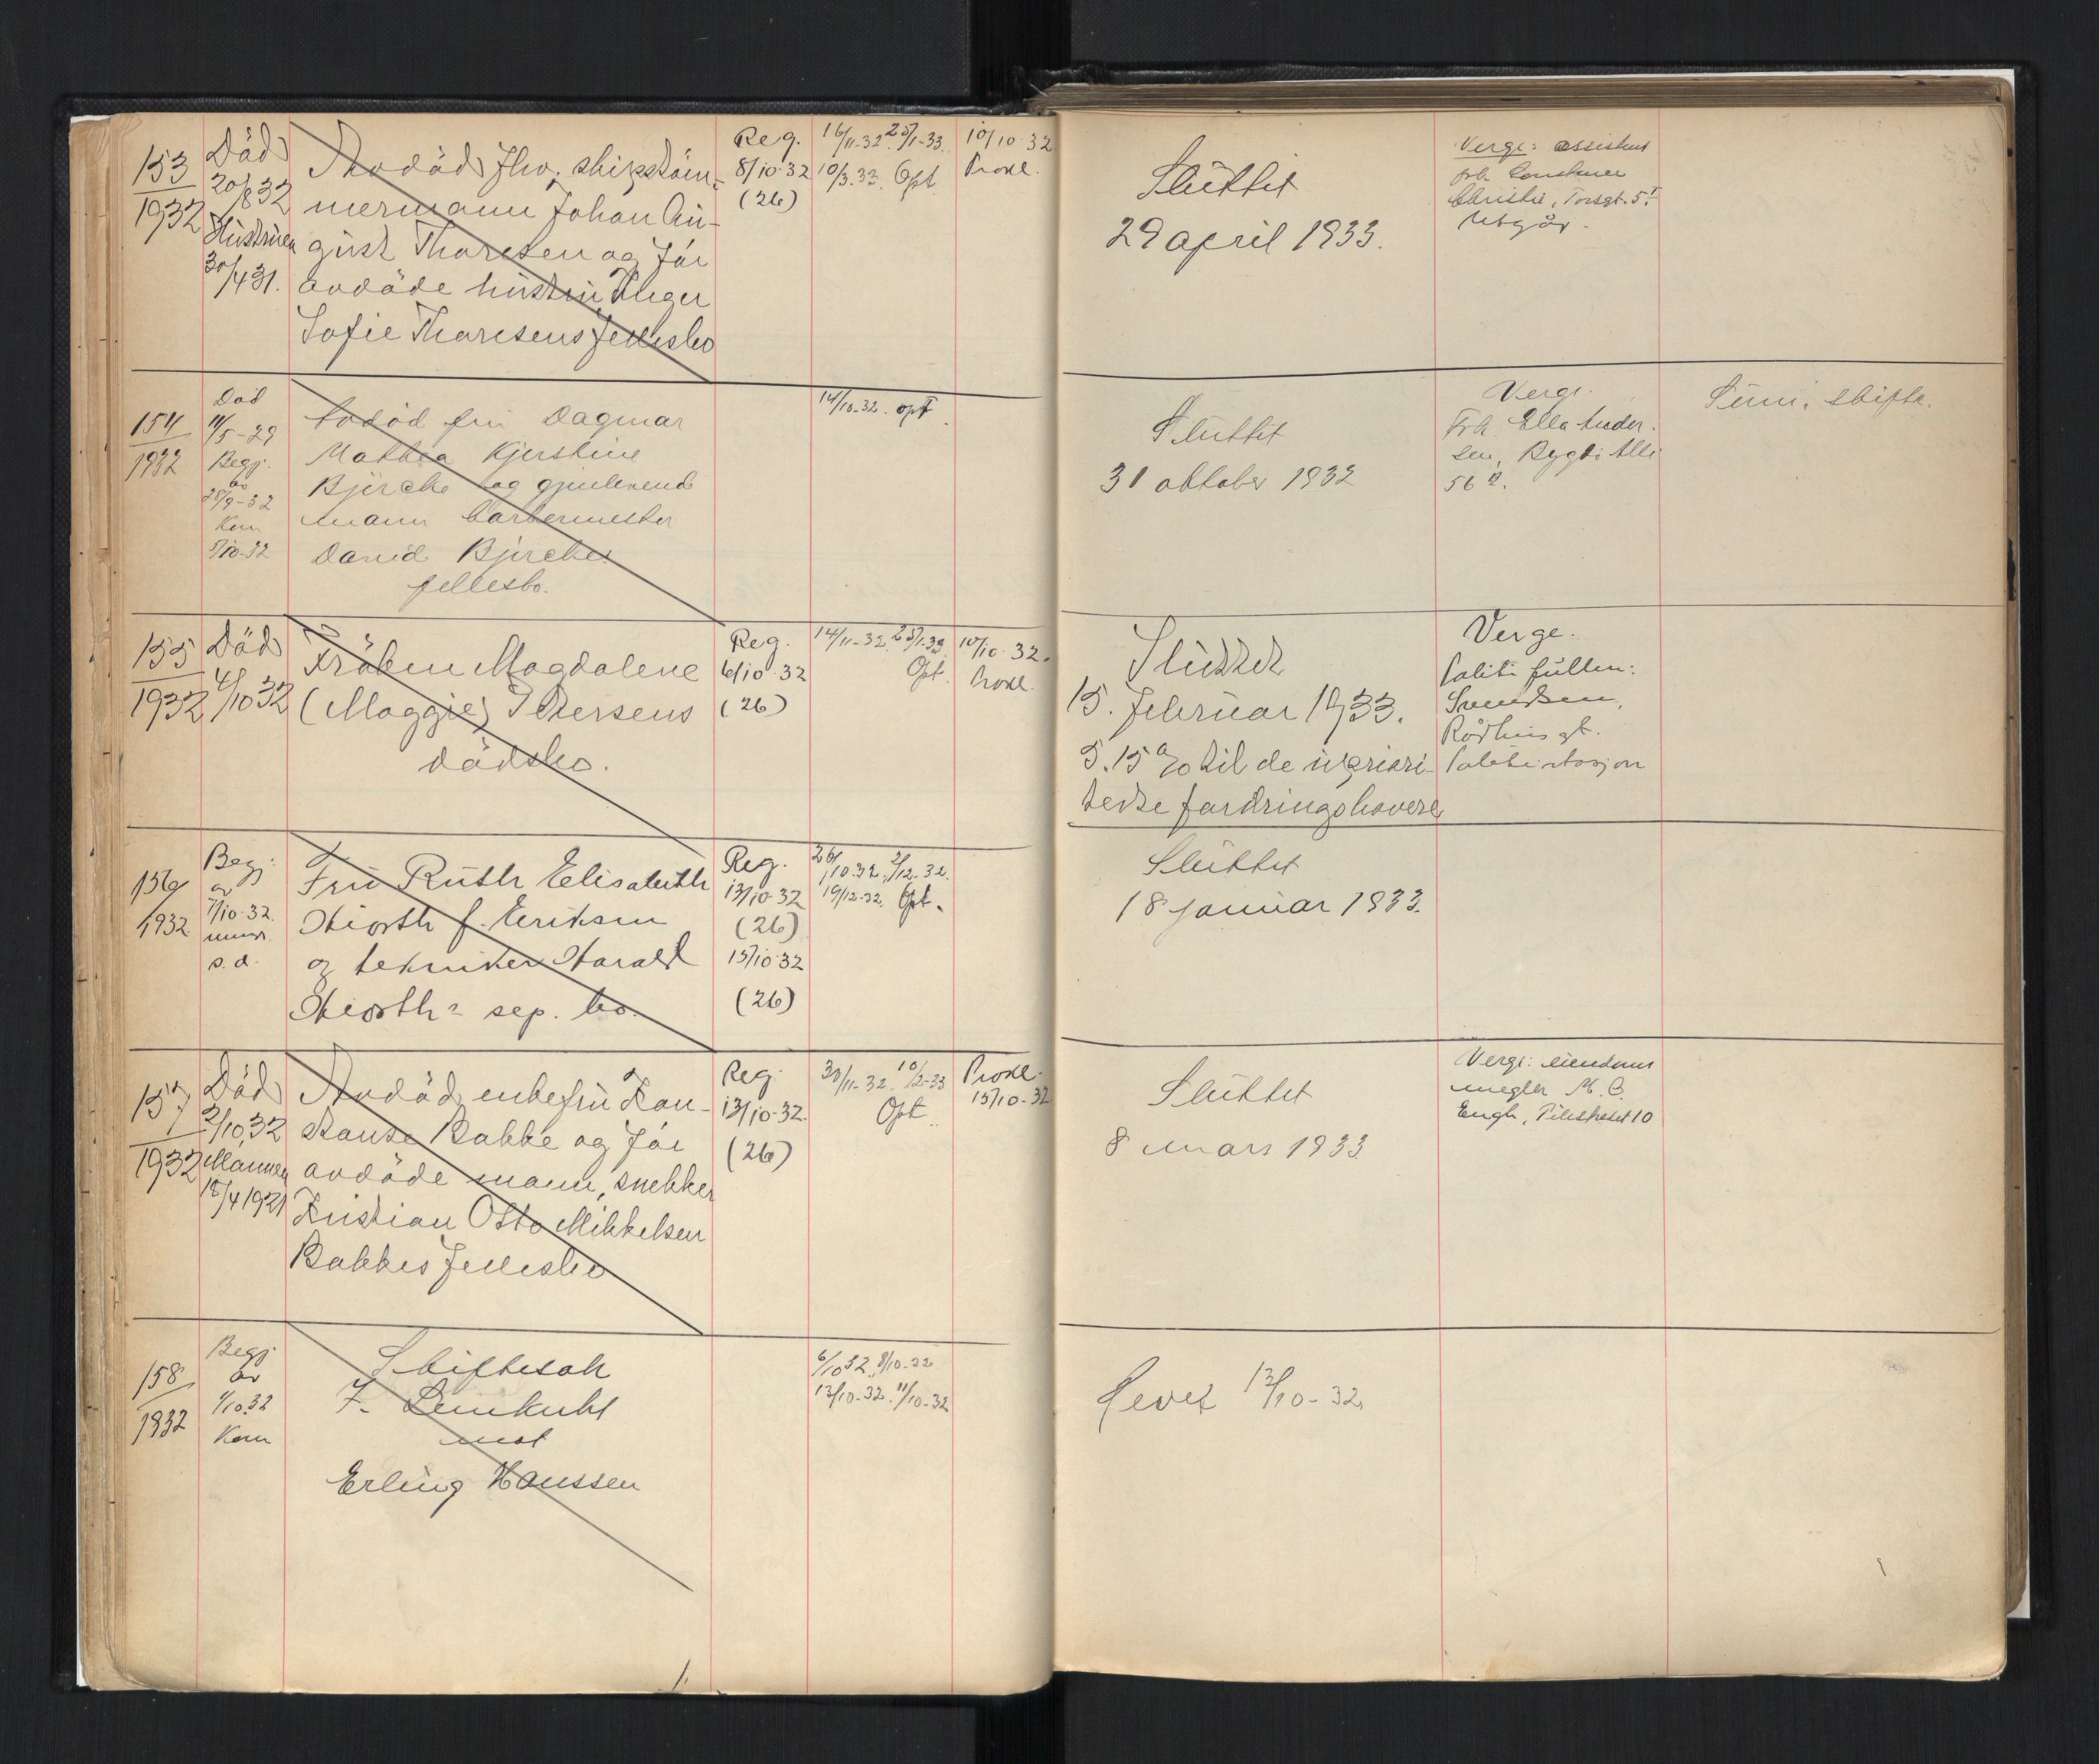 153
1932
Död
20/8 32
Hustruen
30/4 31.
Avdöd fhv. skipstöm-
mermann Johan Au-
gust Thoresen og før
avdöde hustru Inger
Sofie Thoresens fellesbo
Reg.
8/10-32
(26)
16/11-32. 25/1-33.
10/3-33. Opt.
10/10-32
Prokl.
Sluttet
29 april 1933.
Verge: assistent
Christie, Torsgt. 5I
Utgår.
154
1932
Död
11/5-29
Begj.
av
28/9-32
Kom
5/10-32
Avdöd fru Dagmar
Mathea Kjerstine
Bjercke og gjenlevende
mann barbermester
David Bjerckes
fellesbo.
14/10-32. opt.
Sluttet
31 oktober 1932
Verge.
Frk. Ella Ander-
sen, Bygdø Alle
56 II.
Sum. skifte.
155
1932
Död
4/10 32
Fröken Magdalene
(Maggie) Petersens
dödsbo.
Reg.
6/10-32
(26)
14/11-32. 25/1-33
Opt.
10/10-32.
Prokl.
Sluttet
15. februar 1933.
5.15 % til de upriori-
terte fordringshavere
Verge.
Politifullm.
Svendsen,
Rådhusgt.
Politistasjon
156
1932
Begj.
av
7/10-32.
s.d.
Fru Ruth Elisabeth
Hiorth f. Eriksen
og tekniker Harald
Hiorths sep. bo.
Reg.
13/10-32
(26)
15/10-32
(26)
26/10-32. 2/12-32.
19/12-32. Opt.
Sluttet
18 januar 1933.
157
1932
Död
2/10 32
Mannen
15/4 1921
Avdöd enkefru Kon-
stanse Bakke og før
avdöde mann, snekker
Kristian Otto Mikkelsen
Bakkes fellesbo
Reg.
13/10-32.
(26)
30/11-32. 10/2-33
Opt.
Prokl.
15/10-32
Sluttet
8 mars 1933
Verge: eiendoms
megler M. C.
Engh, Pilestredet 10
158
1932
Begj.
av
1/10 32
Kom
Skiftesak
Z. Lemkuhl
mot
Erling Hanssen
6/10 32, 8/10-32
13/10-32. 11/10-32
Hevet 13/10-32.